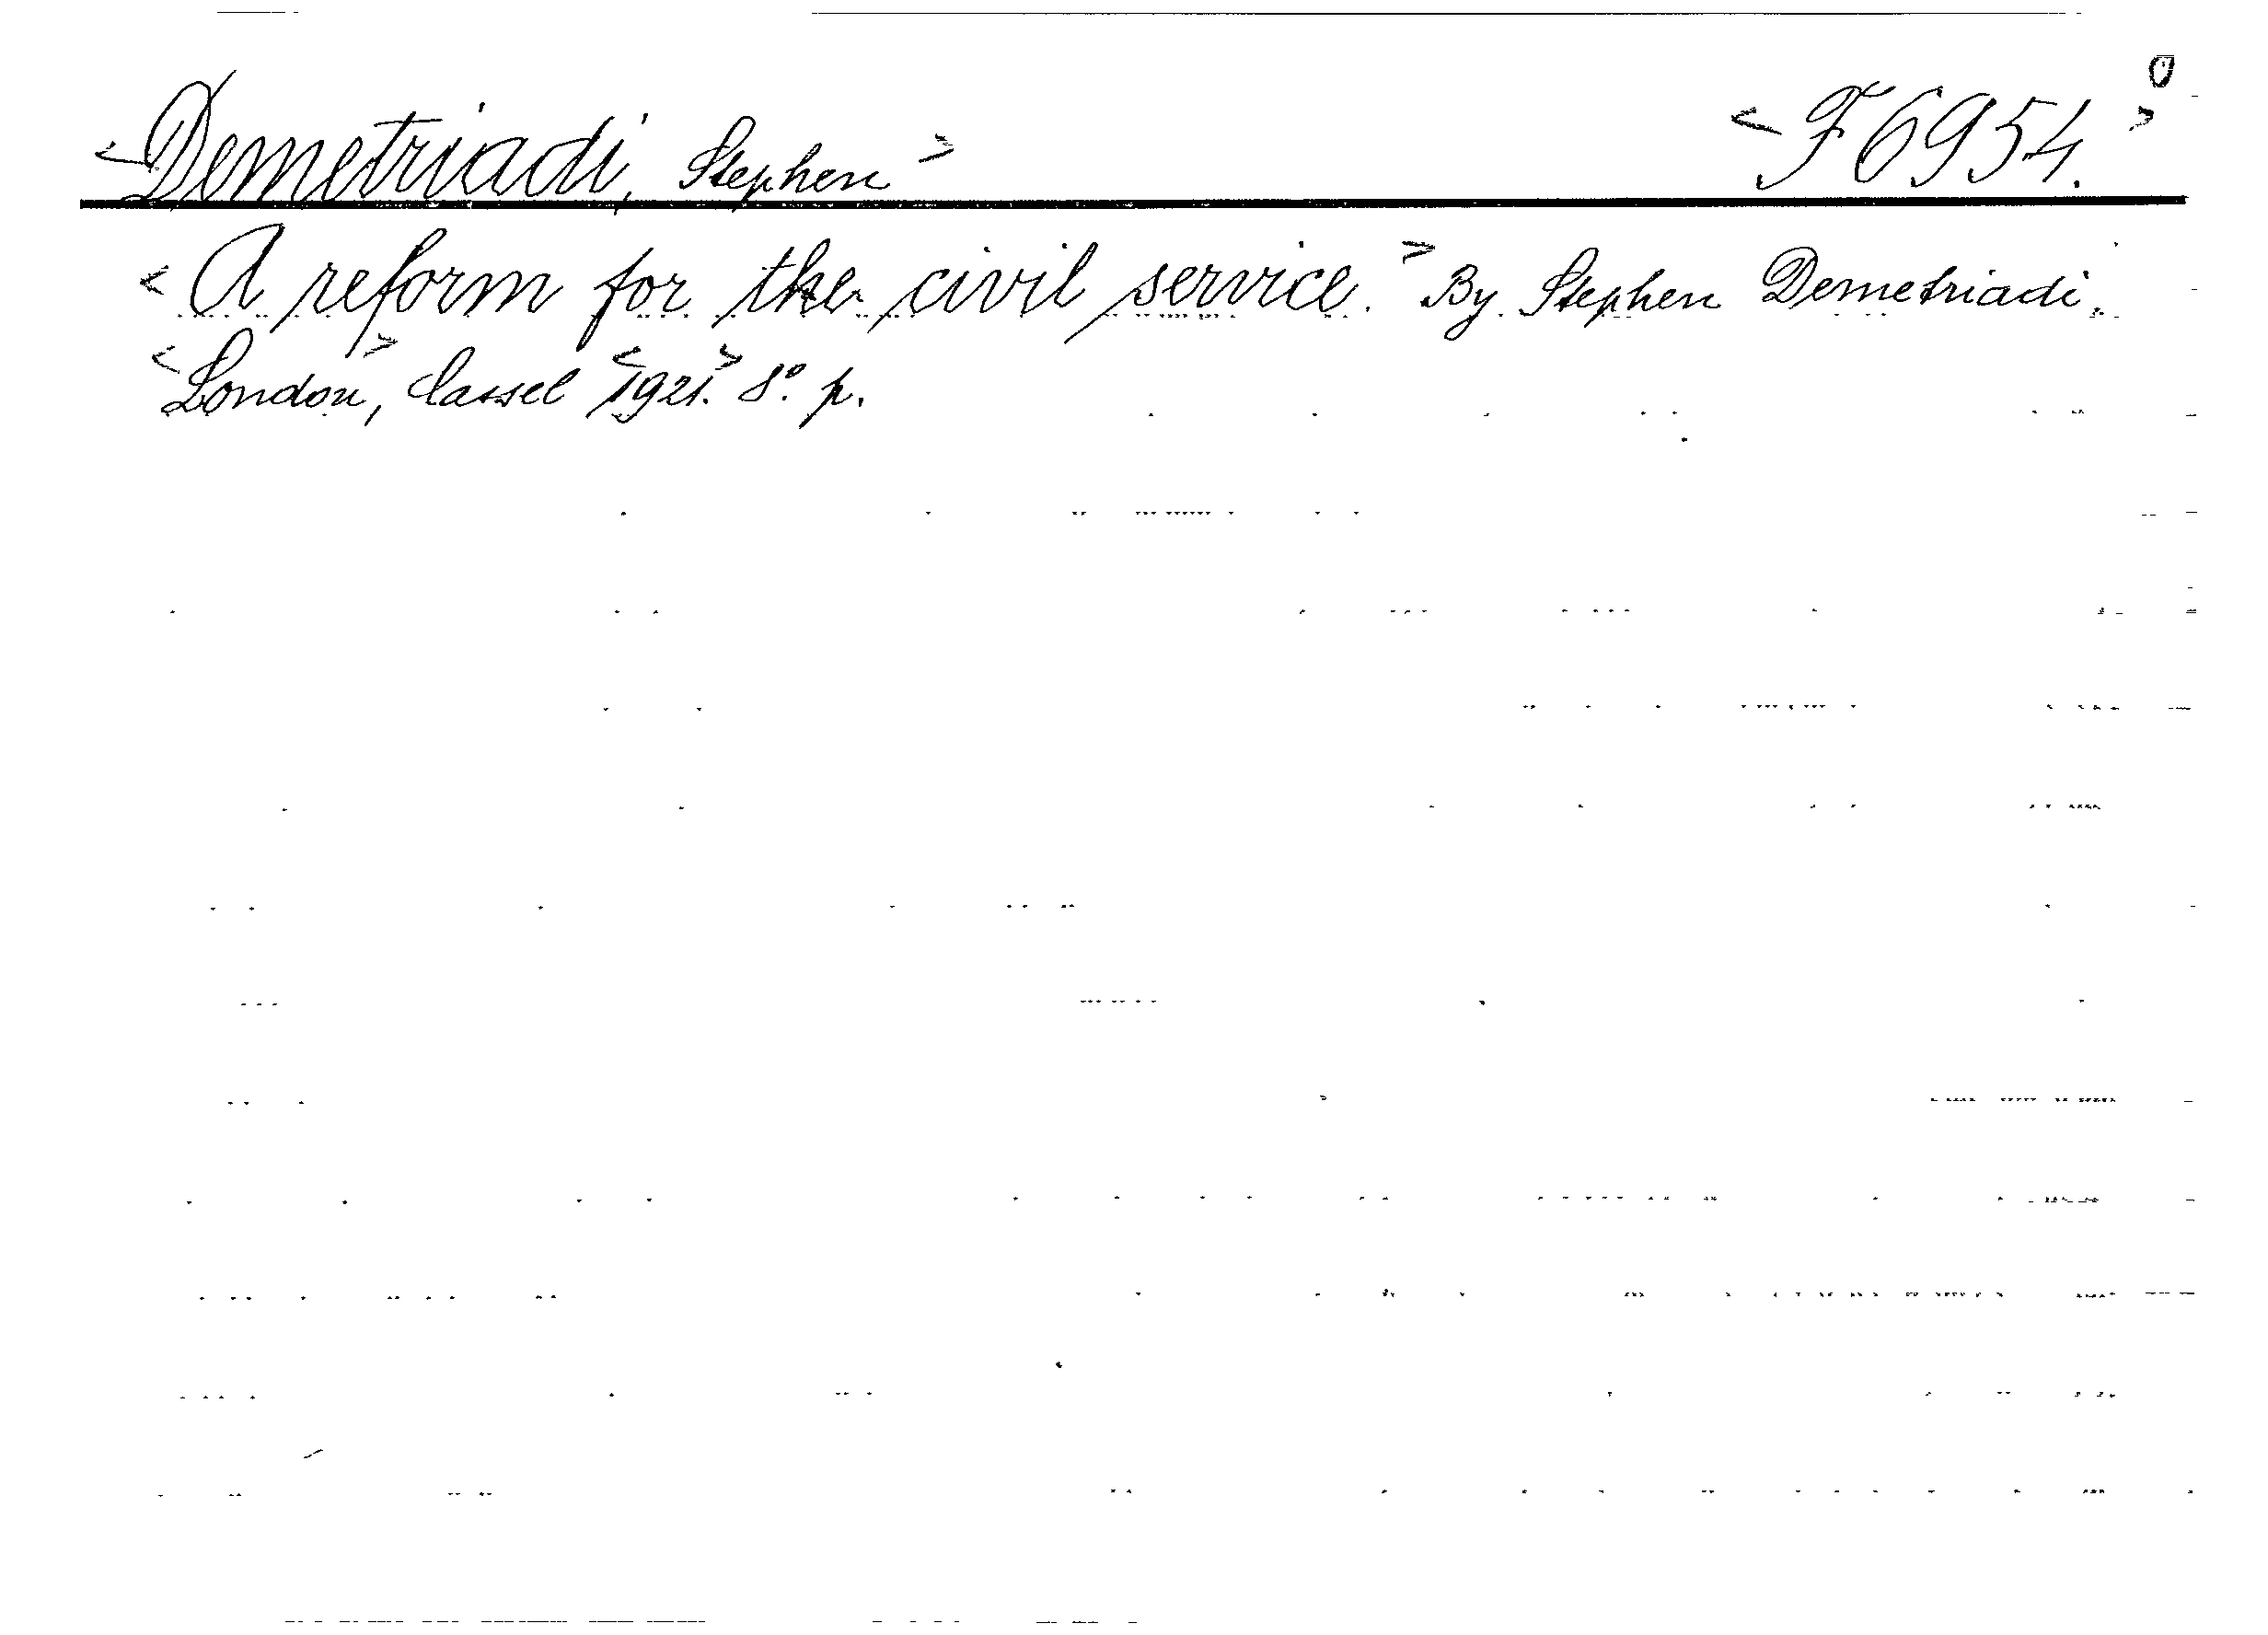 <Demetriadi, Stephen> <F 6954.> 0
<A reform for the civil service.> By Stephen Demetriadi.
<London>, Cassel <1921.> 8º. p.